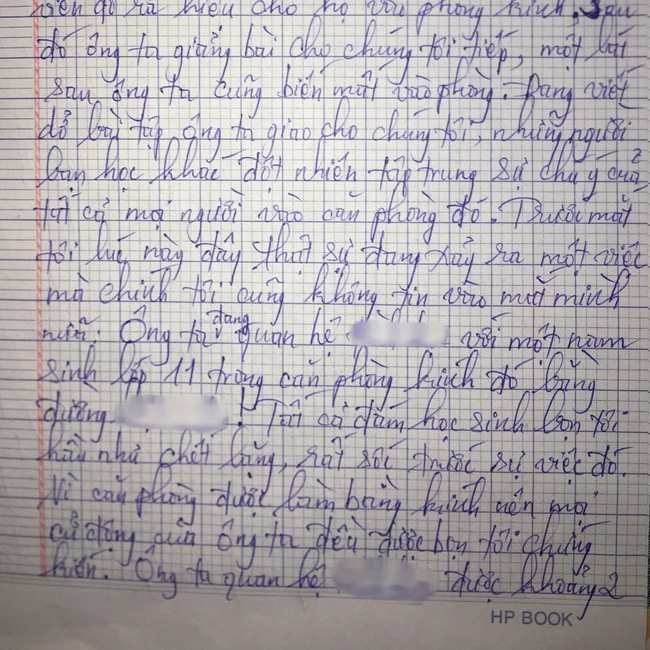 viên đó ra hiệu cho họ vào phòng kính. Sau
đó ông ta giảng bài cho chúng tôi tiếp, một lát
sau ông ta cũng biến mất vào phòng. Đang viết
dở bài tập ông ta giao cho chúng tôi, những người
bạn học khác đột nhiên tập trung sự chú ý của
tất cả mọi người vào căn phòng đó. Trước mắt
tôi lúc này đây thật sự đang xảy ra một việc
mà chính tôi cũng không tin vào mắt mình
nữa. Ông ta đang quan hệ với một nam
sinh lớp 11 trong căn phòng kính đó bằng
đường ! Tất cả đám học sinh bọn tôi
hầu như chết lặng, rất sốc trước sự việc đó.
Vì căn phòng được làm bằng kính nên mọi
cử động của ông ta đều được bọn tôi chứng
kiến. Ông ta quan hệ được khoảng 2
HP BOOK